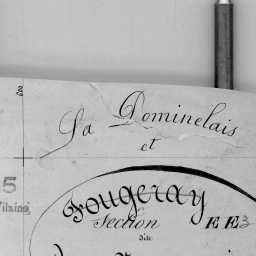 La Dominelais
et
Fougeray
Section EE3
dite
5
Vilaine